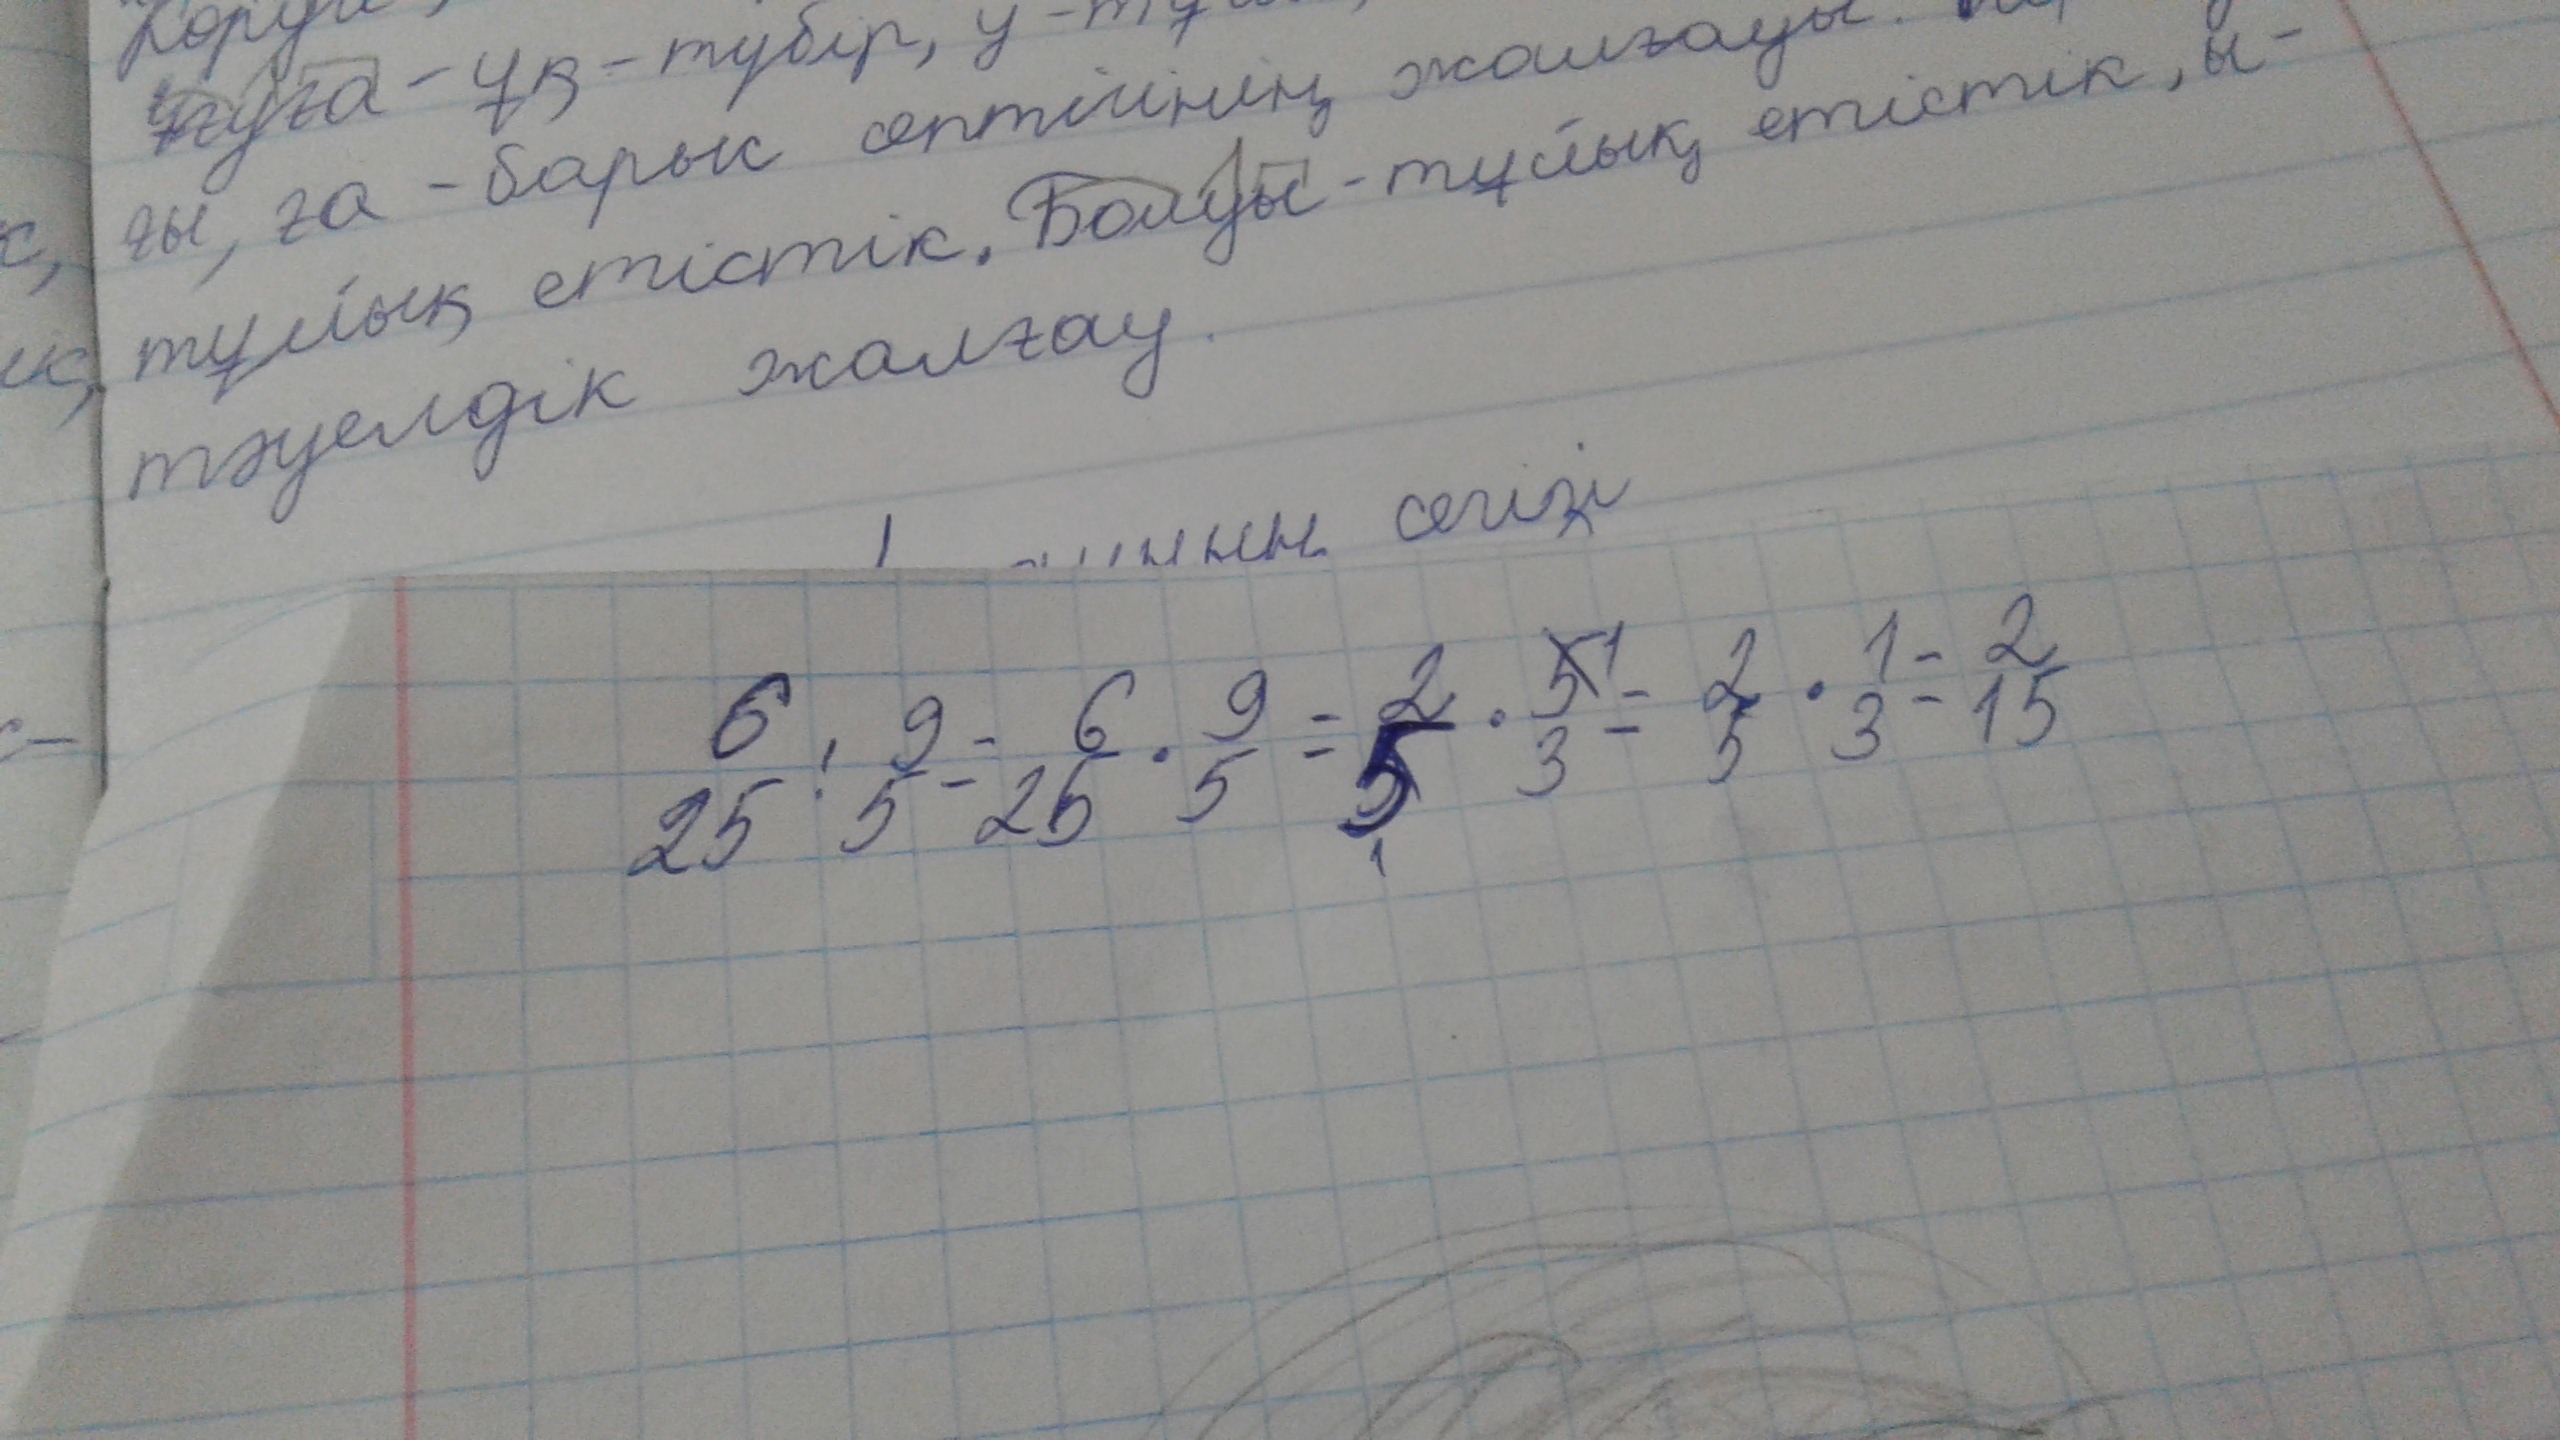 ұғуға - ұқ - түбір, у - тұй
ғы, ға - барыс септігінің жалғауы.
тұйық етістік. Болуы - тұйық етістік, ы -
тәуелдік жалғау.
сегізі
6/25 : 9/5 = 6/25 · 9/5 = 2/5 1 · 5/3 1 = 2/5 · 1/3 = 2/15